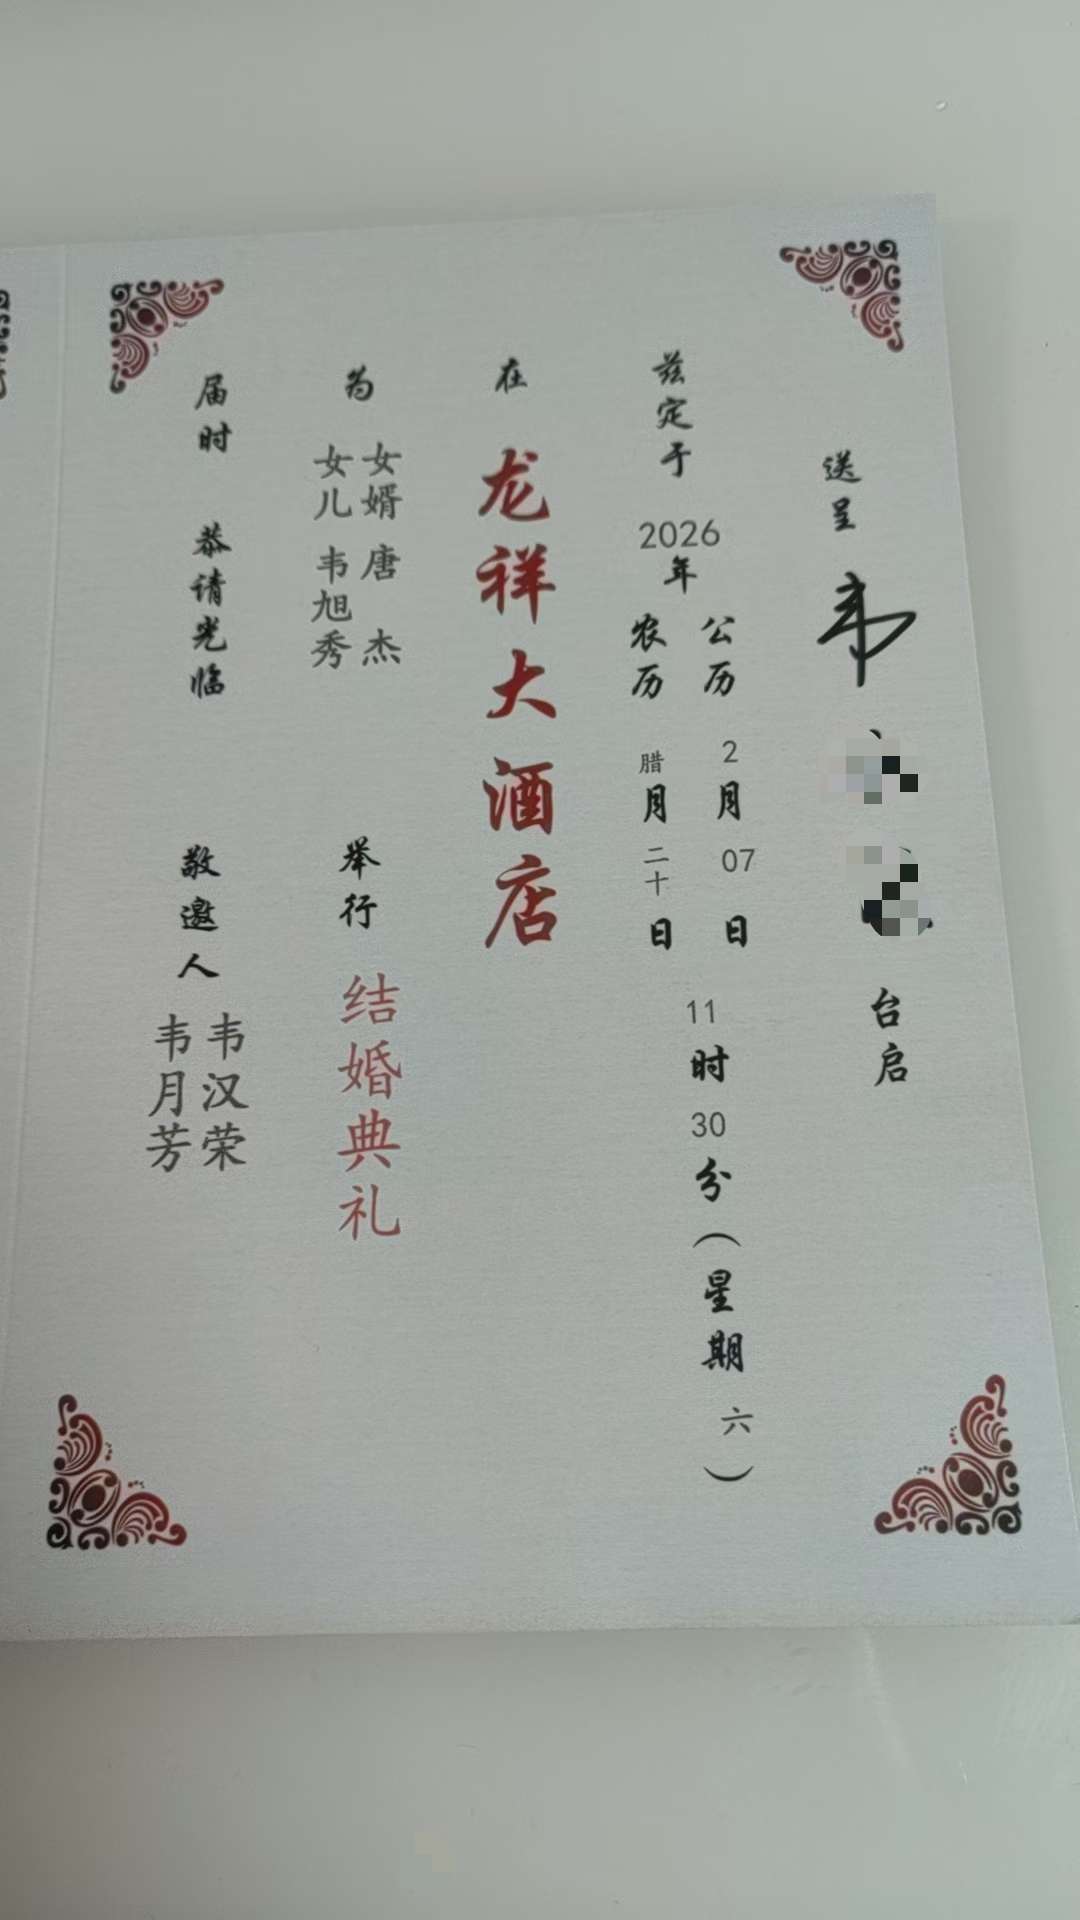 送呈 韦 台启
兹定于 2026年 公历 2月 07日 11时 30分（星期 六）
农历 腊月 二十日
在 龙祥大酒店
为 女婿 唐杰
女儿 韦旭秀
举行 结婚典礼
届时 恭请光临
敬邀人 韦汉荣
韦月芳